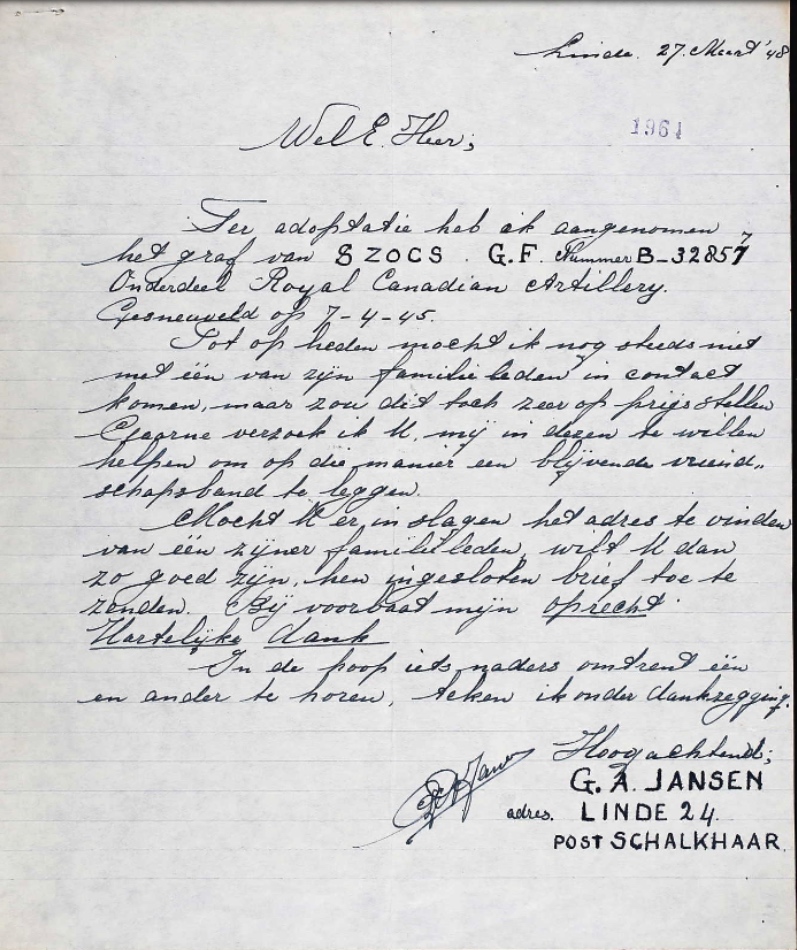 Linde. 27. Maart '48
Wel E. Heer;
1961
Ter adoptatie heb ik aangenomen
het graf van SZOCS. G.F. Nummer B-32857
Onderdeel Royal Canadian Artillery.
Gesneuveld op 7-4-45.
Tot op heden mocht ik nog steeds niet
met één van zijn familieleden in contact
komen, maar zou dit toch zeer op prijs stellen
Gaarne verzoek ik U, mij in dezen te willen
helpen om op die manier een blijvende vriend„
schapsband te leggen.
Mocht U er in slagen het adres te vinden
van één zijner familieleden, wilt U dan
zo goed zijn, hen ingesloten brief toe te
zenden. Bij voorbaat mijn oprecht
Hartelijke dank
In de hoop iets naders omtrent één
en ander te horen, teken ik onder dankzegging.
Hoogachtend;
G. A. JANSEN
adres. LINDE 24.
POST SCHALKHAAR.